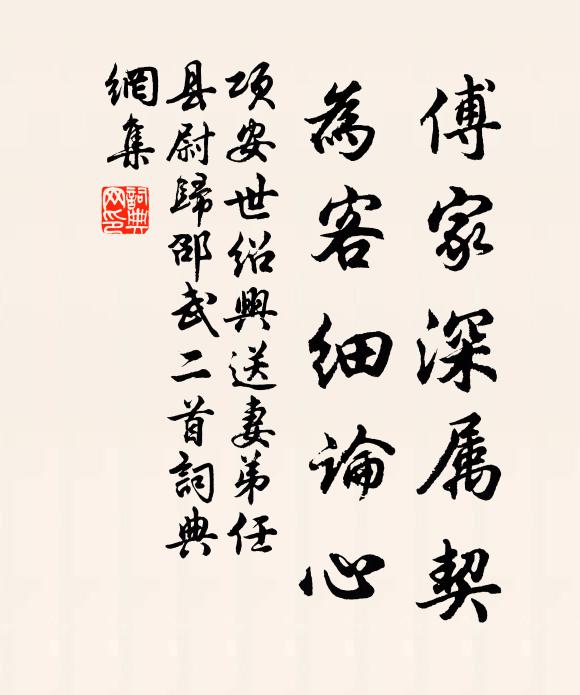 傅家深属契
為客细論心
項安世绍興送妻弟任
县尉歸邵武二首詞典
網集
詞典网印